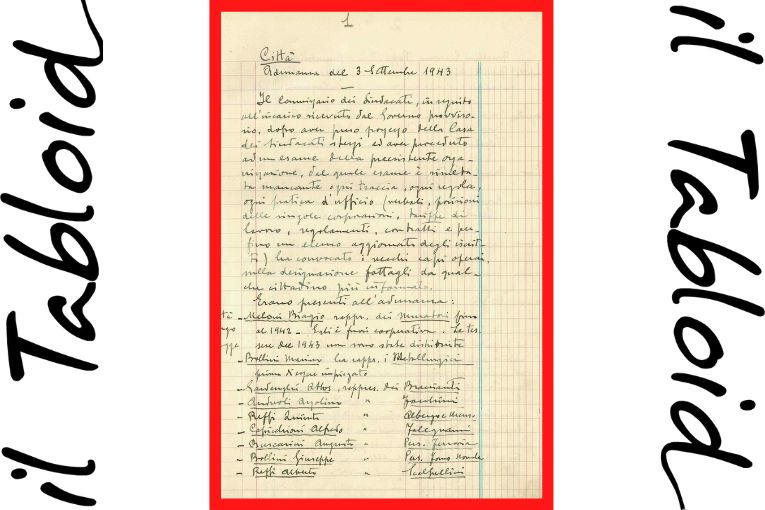 il Tabloid
1
Città
Adunanza del 3 Settembre 1943
Il Commissario dei Sindacati, in seguito
all'incarico ricevuto dal Governo provviso-
rio, dopo aver preso possesso della Casa
dei Sindacati stessi ed aver proceduto
ad un esame della preesistente orga-
nizzazione, dal quale esame è risulta-
ta mancante ogni traccia, ogni regola,
ogni pratica d'ufficio (verbali, posizioni
delle singole corporazioni, tariffe di
lavoro, regolamenti, contratti e per-
fino un elenco aggiornato degli iscrit-
ti) ha convocato i vecchi capi operai,
sulla designazione fattagli da qual-
che cittadino più informato.
Erano presenti all'adunanza:
- Meloni Biagio rappr. dei Muratori fino
al 1942 - Egli è fuori cooperativa. Le tes-
sere del 1943 non sono state distribuite
- Bollini Marino ha rappr. i Metallurgici
prima
- Gardenghi Athos, rappres. dei Braccianti
- Andreoli Azelino " Facchini
- Reffi Quinto " Albergo e Mensa
- Capicchioni Alfredo " Falegnami
- Buscarini Augusto " Pers. Ferrovia
- Bollini Giuseppe " Pers.
- Reffi Alberto " Scalpellini
il Tabloid